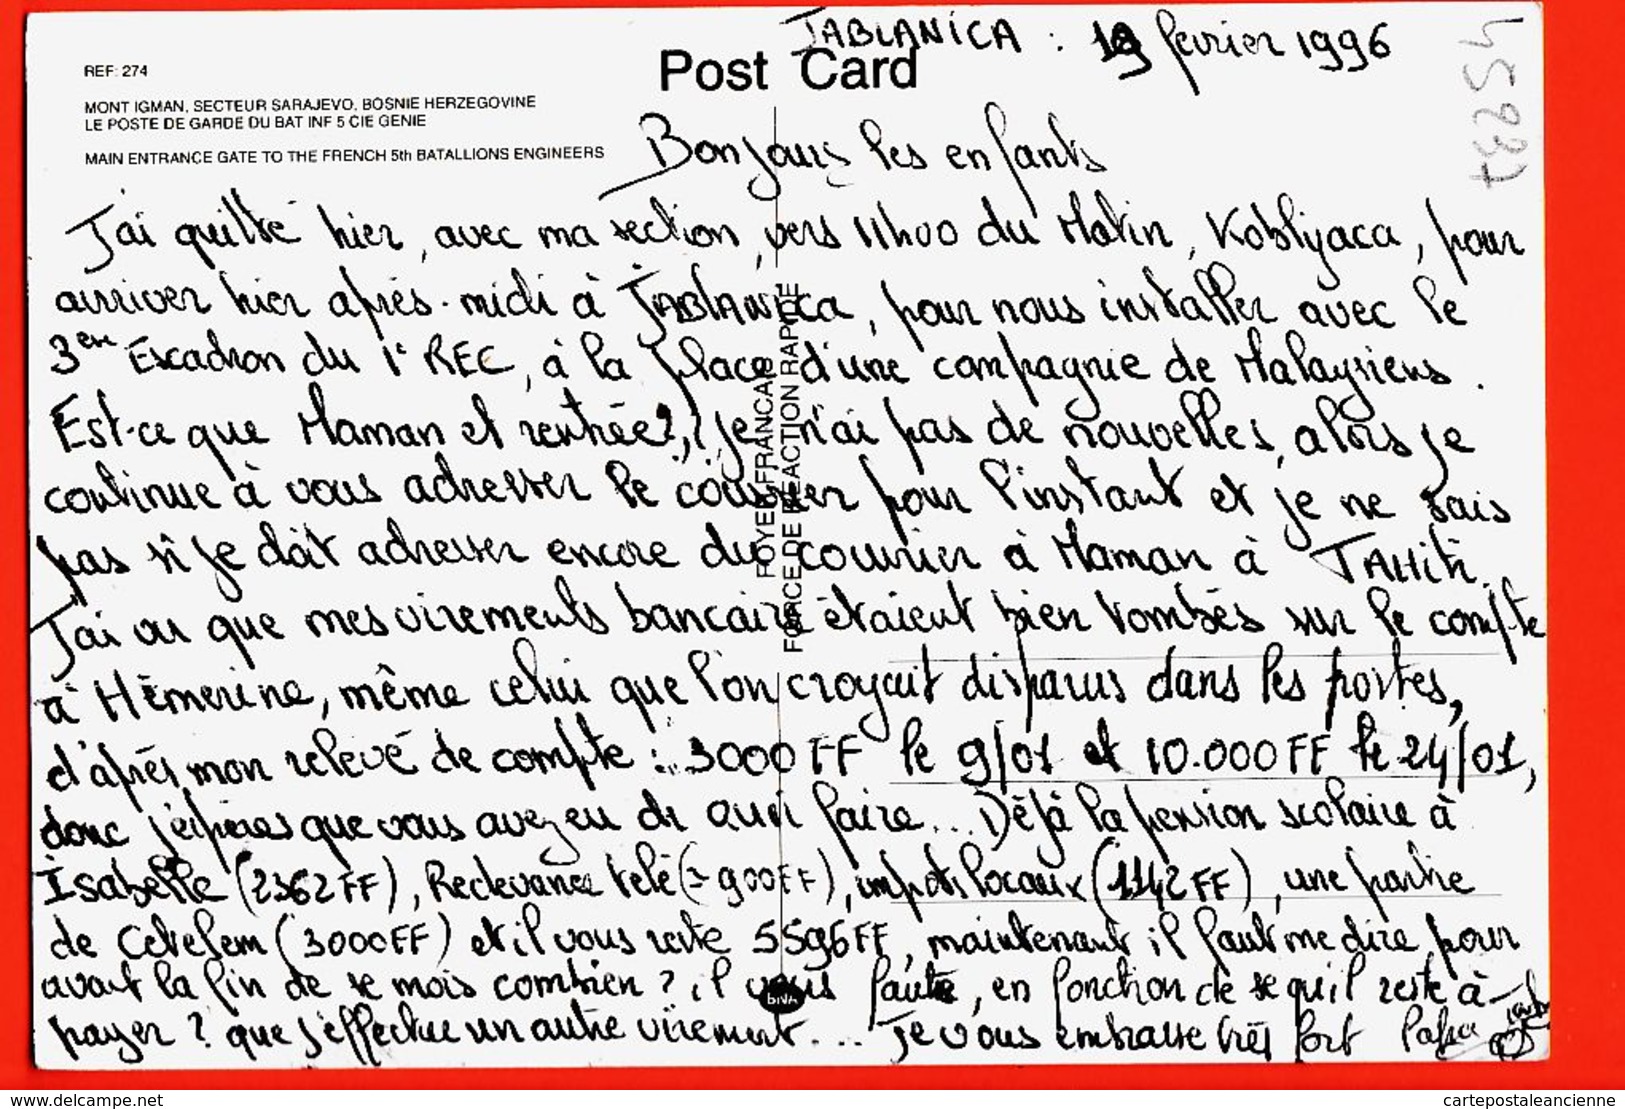 JABLANICA : 19 février 1996
Post Card
REF: 274
MONT IGMAN, SECTEUR SARAJEVO, BOSNIE HERZEGOVINE
LE POSTE DE GARDE DU BAT INF 5 CIE GENIE
MAIN ENTRANCE GATE TO THE FRENCH 5th BATALLIONS ENGINEERS
45837
Bonjours les enfants
J'ai quitté hier, avec ma section, vers 11h00 du Matin, Kobljaca, pour
arriver hier après-midi à JABLANICA, pour nous installer avec le
3ème Escadron du 1er REC, à la place d'une compagnie de Malaysiens.
Est-ce que Maman et rentrée?, ? je n'ai pas de nouvelles, alors je
continue à vous adresser le courrier pour l'instant et je ne sais
pas si je doit adresser encore du courrier à Maman à TAHITI.
J'ai vu que mes virements bancaire étaient bien tombés sur le compte
à Hémerine, même celui que l'on croyait disparus dans les postes,
d'après mon relevé de compte : 3000 FF le 9/01 et 10.000 FF le 24/01,
donc j'espères que vous avez eu de quoi faire... Déjà la pension scolaire à
Isabelle (2362 FF), Redevance télé (≃ 900 FF), impots locaux (1142 FF), une partie
de Cetelem (3000 FF) et il vous reste 5596 FF, maintenant il faut me dire pour
avant la fin de se mois combien ? il vous faute, en fonction de se qu'il reste à
payer ? que j'effectue un autre virement... Je vous embrasse très fort Papa
FOYER FRANCAIS
FORCE DE REACTION RAPIDE
bNA
www.delcampe.net
cartepostaleancienne